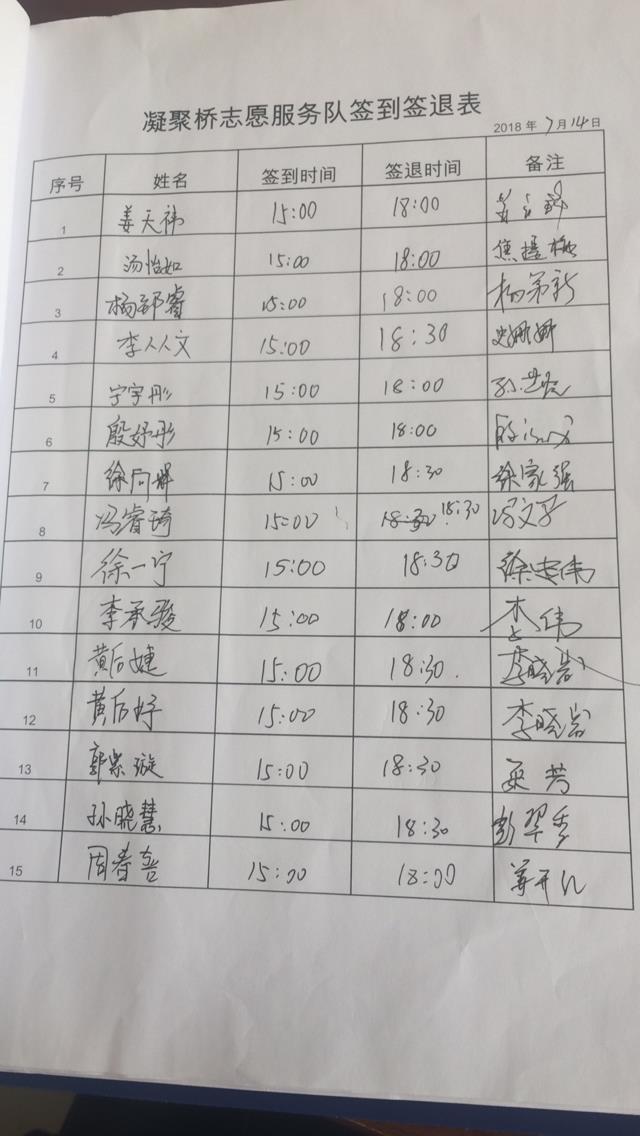 凝聚桥志愿服务队签到签退表
2018年7月14日
序号 姓名 签到时间 签退时间 备注
1 姜天祎 15:00 18:00
2 汤怡如 15:00 18:00
3 杨邵睿 15:00 18:00 杨第新
4 李人人文 15:00 18:30 史娜娜
5 宁宇彤 15:00 18:00
6 殷妤彤 15:00 18:00
7 徐同辉 15:00 18:30 徐家强
8 冯睿琦 15:00 18:30 18:30 冯文
9 徐一宁 15:00 18:30 徐忠伟
10 李承骏 15:00 18:00 李伟
11 黄后婕 15:00 18:30 李晓岩
12 黄后妤 15:00 18:30 李晓岩
13 郭紫璇 15:00 18:30 芳
14 孙晓慧 15:00 18:30 彭翠香
15 周春喜 15:00 18:00 姜开